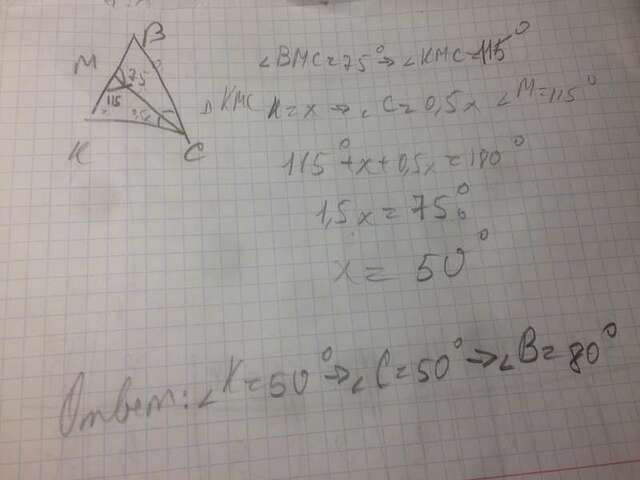 B
M
75°
115°
K
C
∠BMC=75° ⇒ ∠KMC=115°
△KMC K=x ⇒ ∠C=0,5x ∠M=115°
115°+x+0,5x=180°
1,5x=75°
x=50°
Ответ: ∠K=50° ⇒ ∠C=50° ⇒ ∠B=80°